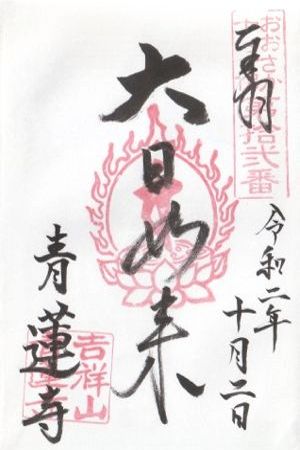 奉拝
おおさか十三佛第拾弐番
令和二年
十月二日
大日如来
吉祥山
青蓮寺